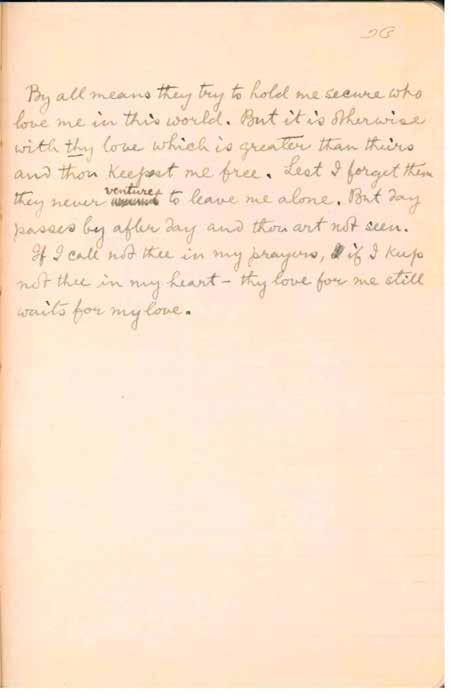 26
By all means they try to hold me secure who
love me in this world. But it is otherwise
with thy love which is greater than theirs
and thou keepest me free. Lest I forget them
they never venture to leave me alone. But day
passes by after day and thou art not seen.
If I call not thee in my prayers, if I keep
not thee in my heart – thy love for me still
waits for my love.